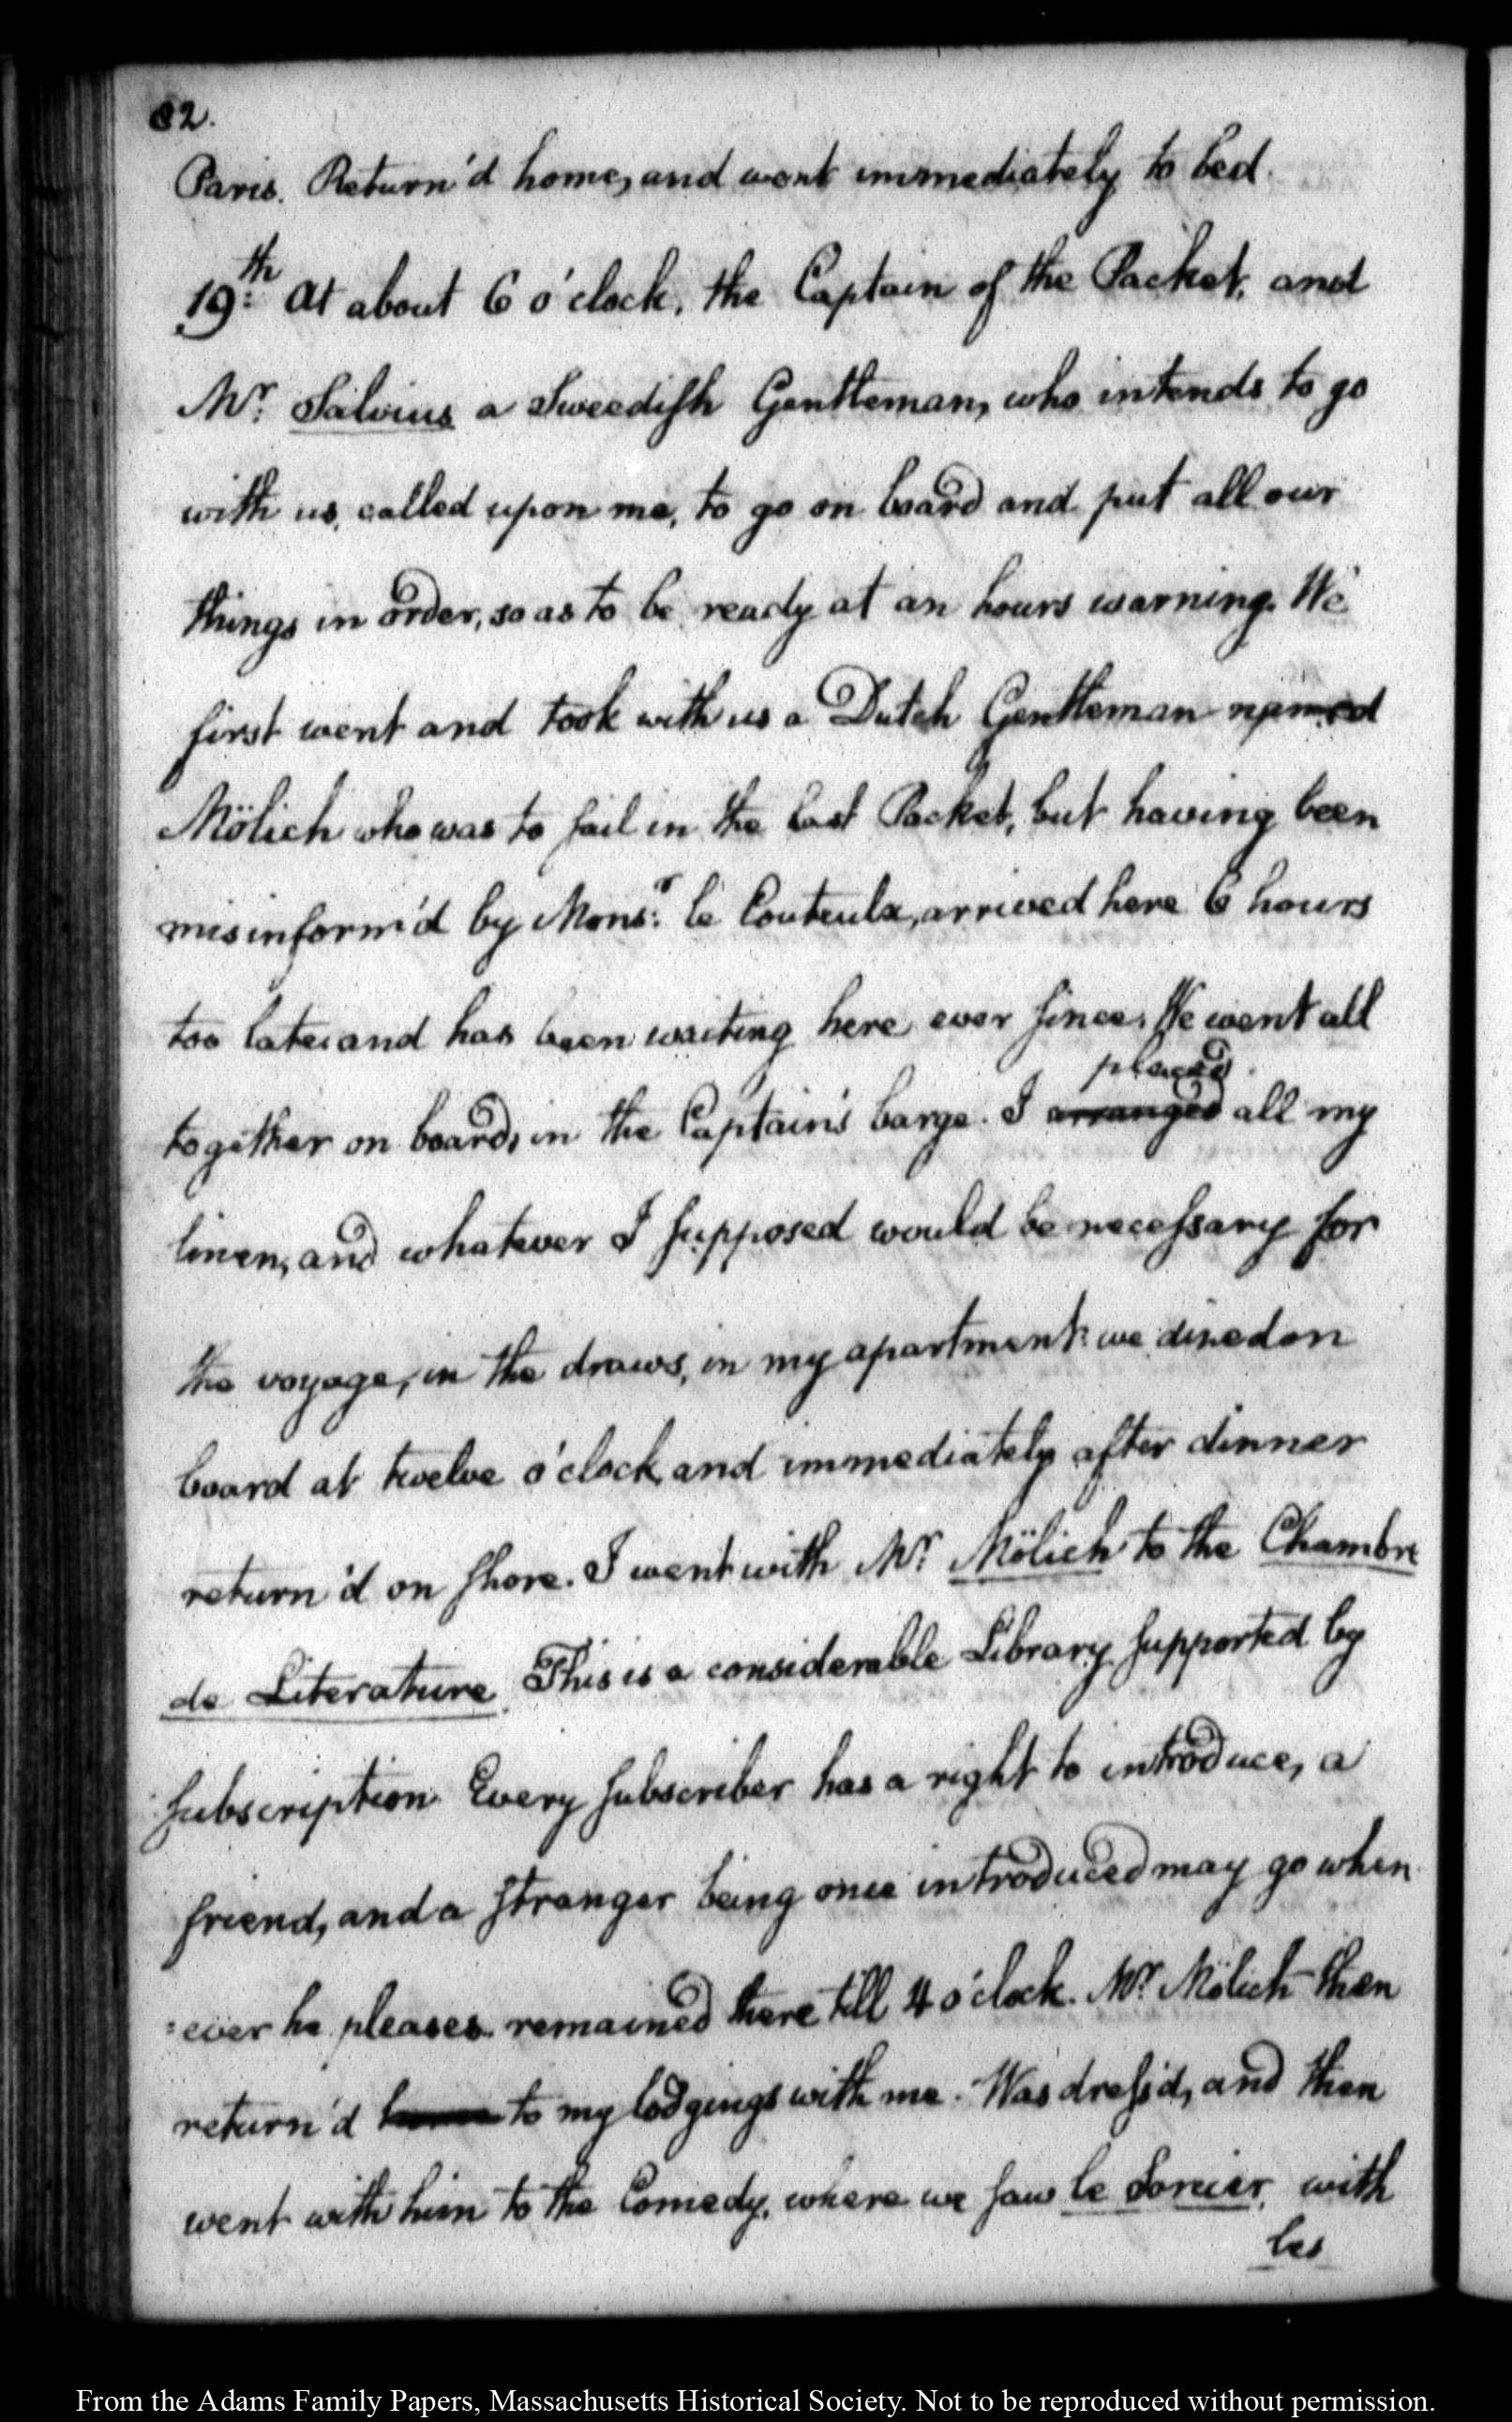 82.
Paris. Return'd home, and went immediately to bed.
19th: At about 6 o'clock, the Captain of the Packet, and
Mr: Salvius a Swedish Gentleman, who intends to go
with us, called upon me, to go on board and put all our
things in order, so as to be ready at an hours warning. We
first went and took with us a Dutch Gentleman named
Mölich who was to sail in the last Packet, but having been
misinform'd by Monsr: le Couteulx, arrived here 6 hours
too late, and has been waiting here ever since. We went all
placed
together on board, in the Captain's barge. I arranged all my
linen, and whatever I supposed would be necessary for
the voyage, in the draws, in my apartment: we dined on
board at twelve o'clock, and immediately after dinner
return'd on shore. I went with Mr. Mölich to the Chambre
de Literature. This is a considerable Library supported by
subscription. Every subscriber has a right to introduce, a
friend, and a stranger being once introduced may go when
=ever he pleases. remained there till 4 o'clock. Mr. Mölich then
return'd home to my lodgings with me. Was dress'd, and then
went with him to the Comedy, where we saw le Sorcier, with
les
From the Adams Family Papers, Massachusetts Historical Society. Not to be reproduced without permission.